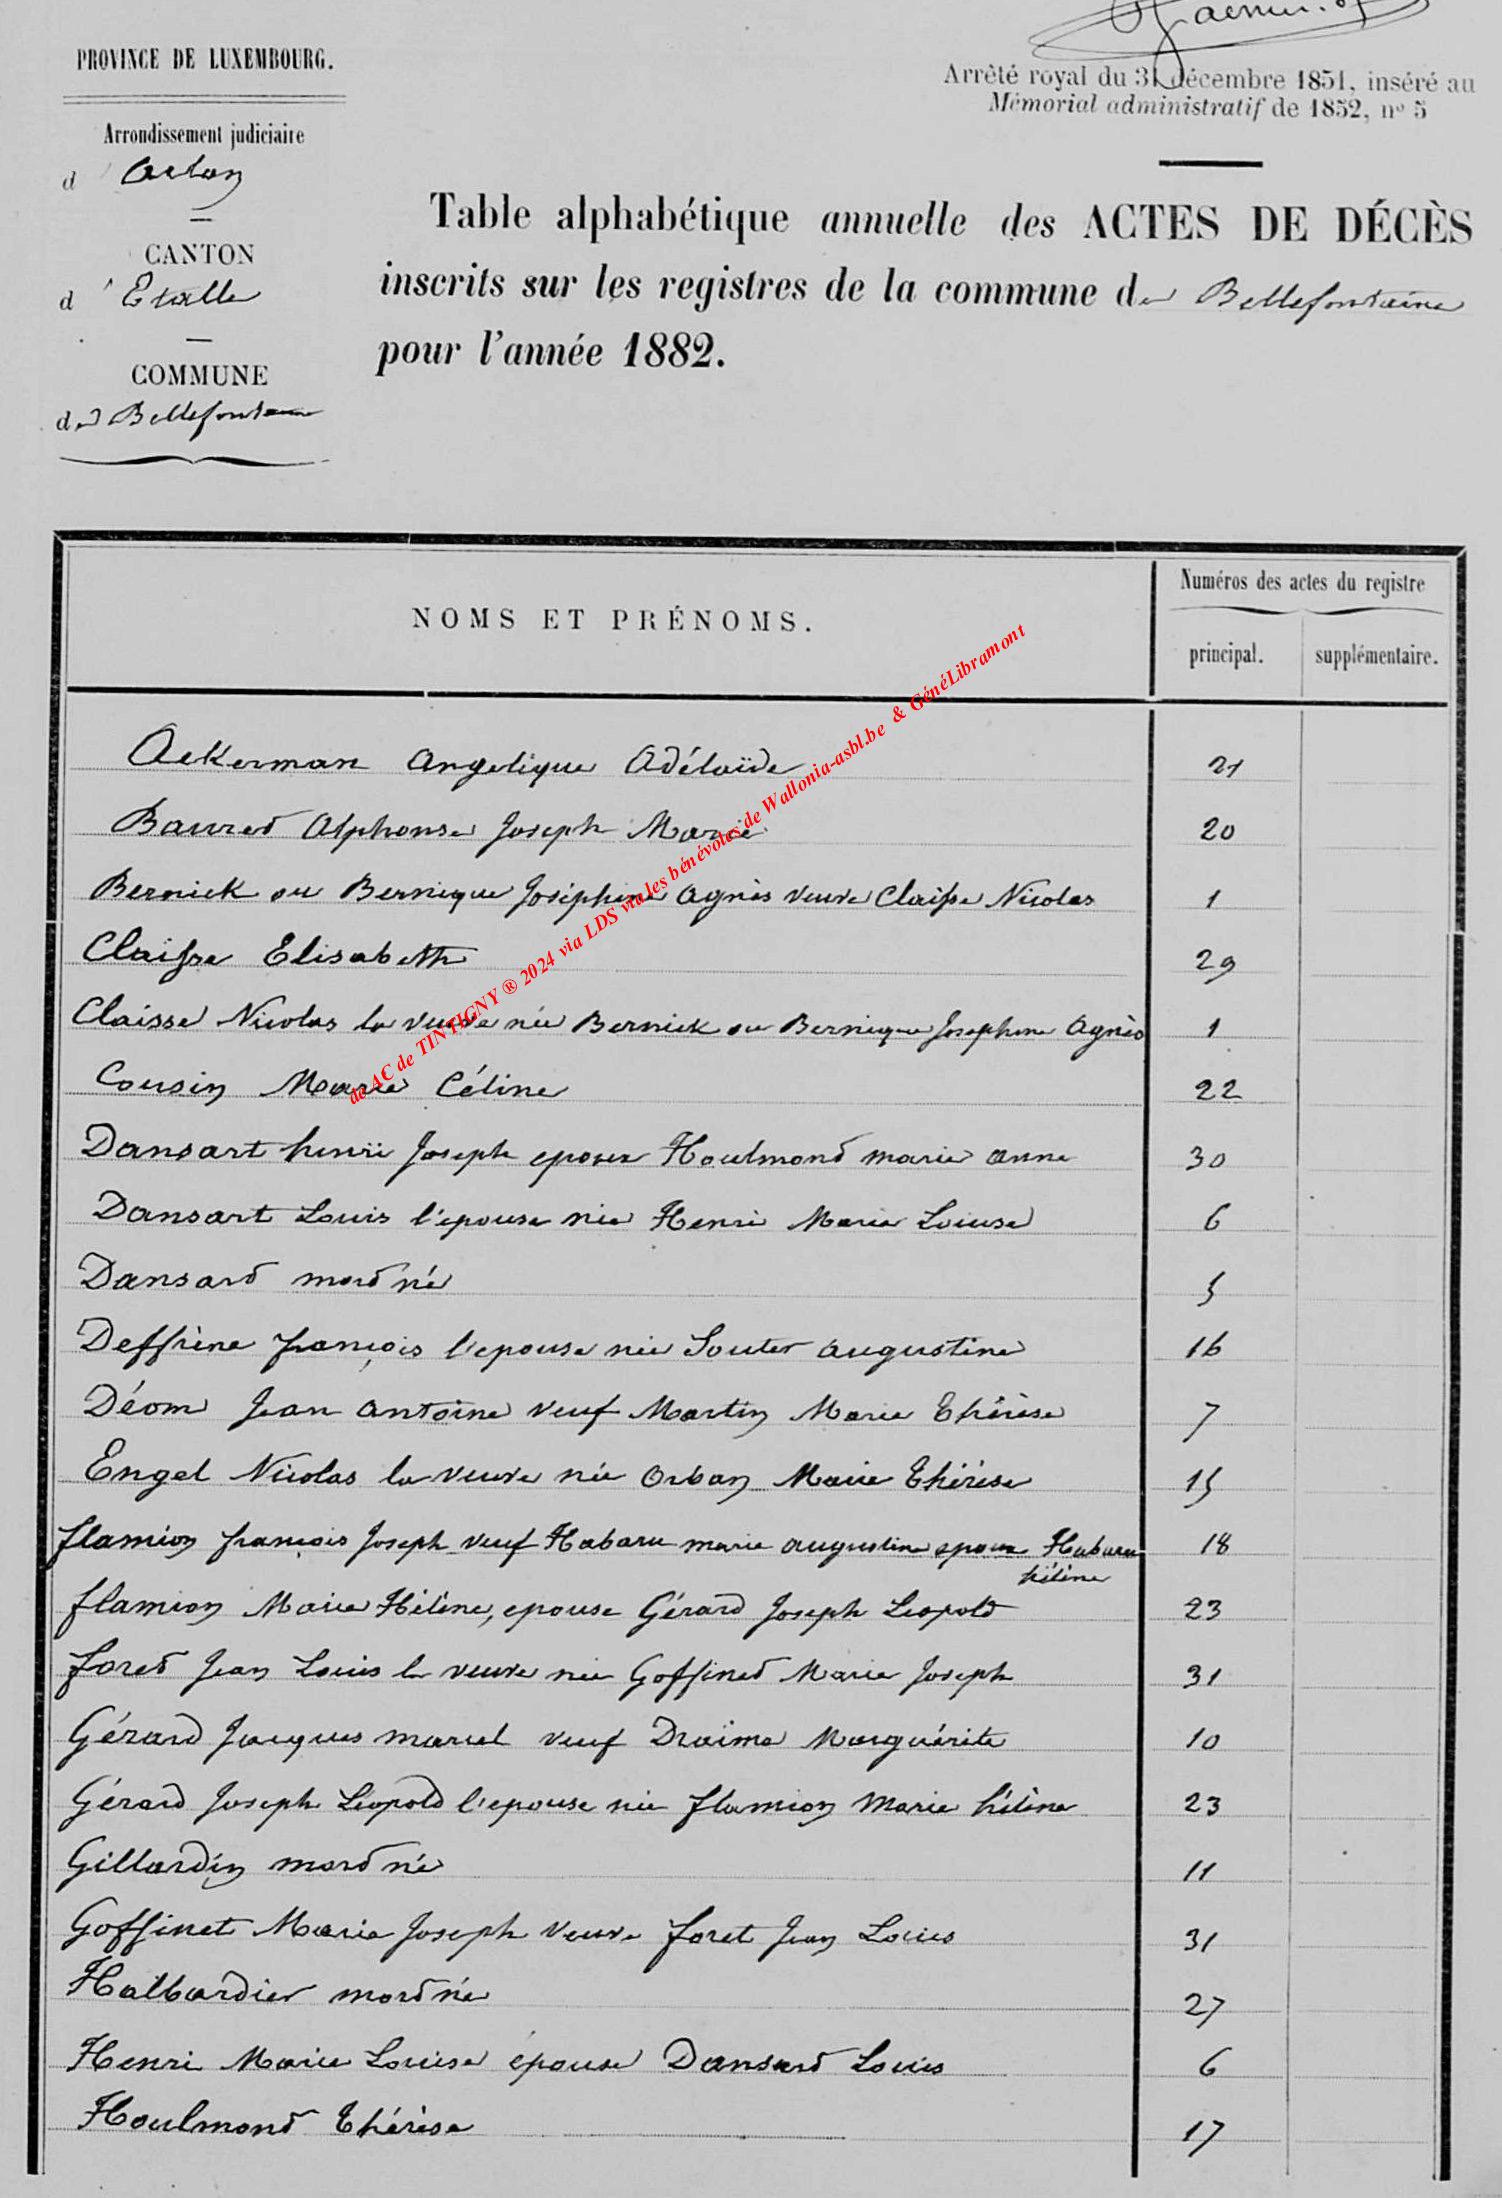 PROVINCE DE LUXEMBOURG.
Arrondissement judiciaire
d'Arlon
CANTON
d'Etalle
COMMUNE
de Bellefontaine
Arrêté royal du 31 décembre 1851, inséré au
Mémorial administratif de 1852, nº 5
Table alphabétique annuelle des ACTES DE DÉCÈS
inscrits sur les registres de la commune de Bellefontaine
pour l'année 1882.
NOMS ET PRÉNOMS.
Numéros des actes du registre
principal. supplémentaire.
Ackerman Angelique Adélaïde 21
Bauret Alphonse Joseph Marie 20
Bernick ou Bernique Joséphine Agnès veuve Claisse Nicolas 1
Claisse Elisabeth 29
Claisse Nicolas la veuve née Bernick ou Bernique Josephine Agnès 1
Cousin Marie Céline 22
Dansart henri Joseph epoux Houlmond marie anne 30
Dansart Louis l'epouse née Henri Marie Louise 6
Dansard mord né 5
Deffrène françois l'epouse née Souter augustine 16
Déom Jean antoine veuf Martin Marie Thérèse 7
Engel Nicolas la veuve née Orban Marie Thérèse 15
flamion françois Joseph veuf Habaru marie augustine epoux Habaru 18
hélène
flamion Marie Hélène, epouse Gérard Joseph Leopold 23
foret Jean Louis la veuve née Goffinet Marie Joseph 31
Gérard Jacques marcel veuf Draime Marguérite 10
Gérard Joseph Léopold l'epouse née flamion Marie hélène 23
Gillardin mord né 11
Goffinet Marie Joseph veuve foret Jean Louis 31
Halbardier mord né 27
Henri Marie Louise épouse Dansard Louis 6
Houlmond Thérèse 17
de AC de TINTIGNY ® 2024 via LDS via les bénévoles de Wallonia-asbl.be & GénéLibramont